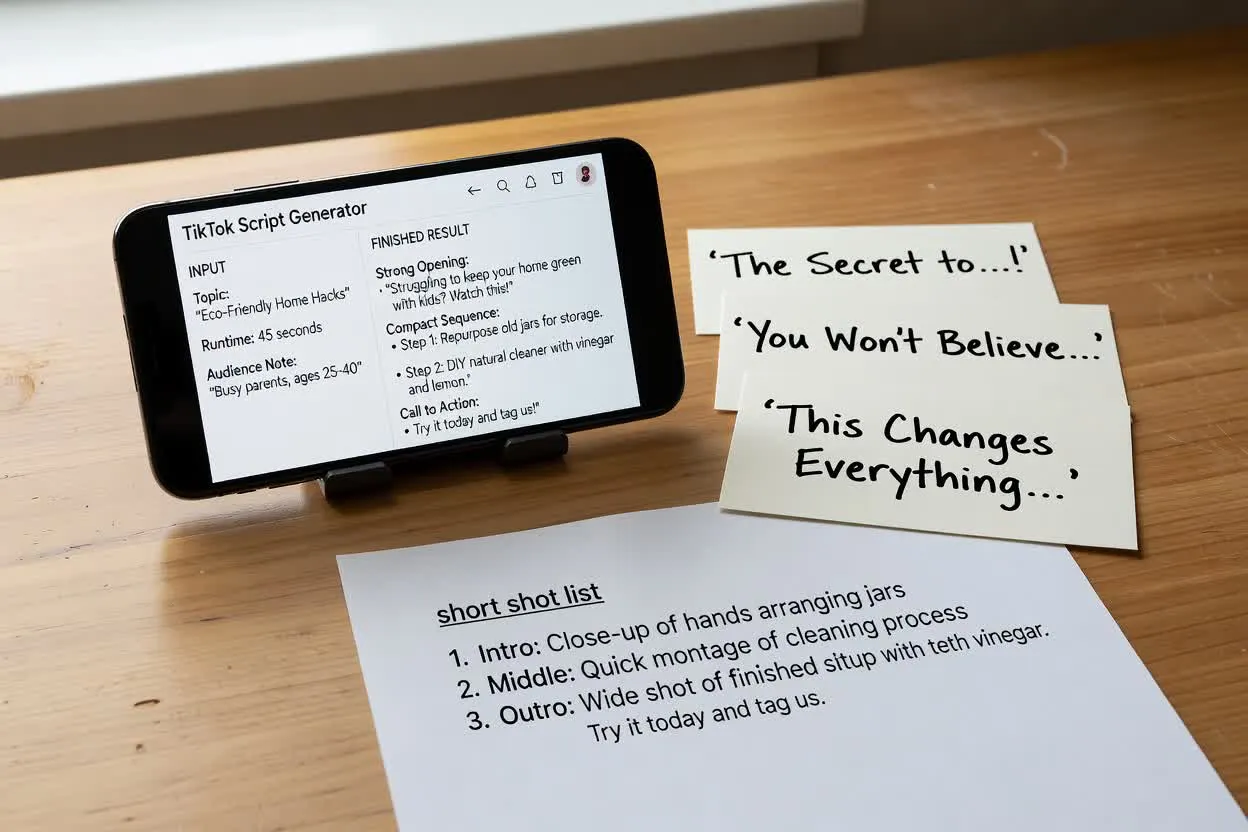 TikTok Script Generator
INPUT
Topic:
"Eco-Friendly Home Hacks"
Runtime: 45 seconds
Audience Note:
"Busy parents, ages 25-40"
FINISHED RESULT
Strong Opening:
• "Struggling to keep your home green
with kids? Watch this!"
Compact Sequence:
• Step 1: Repurpose old jars for storage.
• Step 2: DIY natural cleaner with vinegar
and lemon."
Call to Action:
• Try it today and tag us!"
'The Secret to...!'
'You Won't Believe...'
'This Changes
Everything...'
short shot list
1. Intro: Close-up of hands arranging jars
2. Middle: Quick montage of cleaning process
3. Outro: Wide shot of finished situp with teth vinegar.
Try it today and tag us.